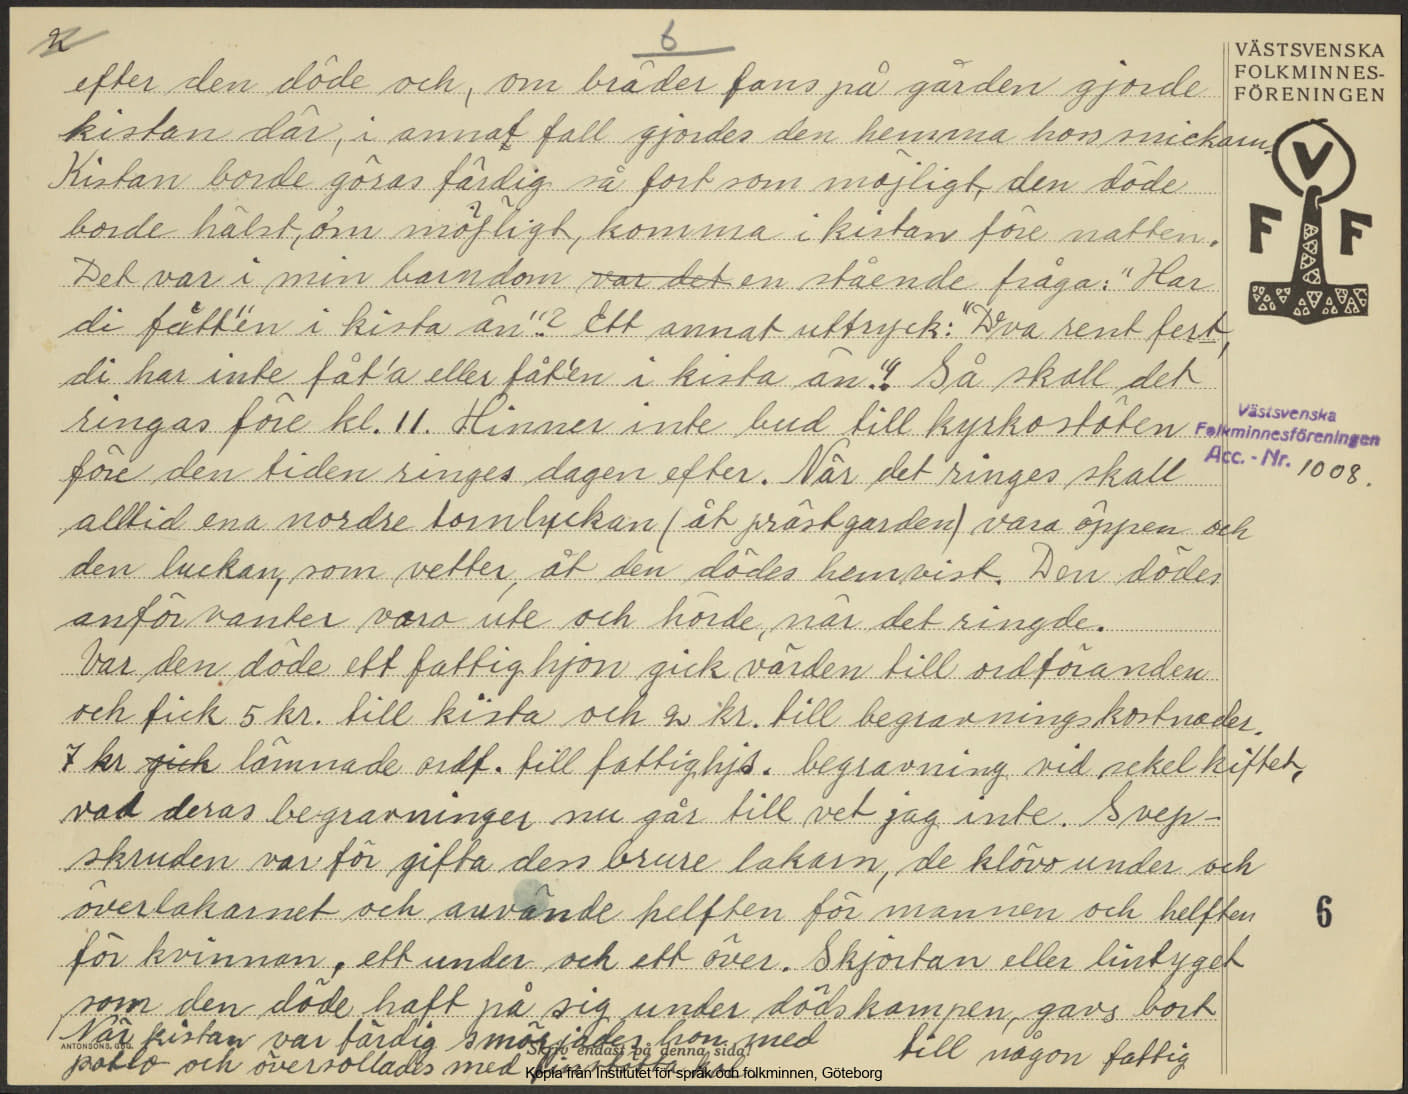 2
6
VÄSTSVENSKA
FOLKMINNES-
FÖRENINGEN
efter den döde och, om bräder fans på gården gjorde
kistan där, i annat fall gjordes den hemma hos snickarn.
Kistan borde göras färdig så fort som möjligt, den döde
borde hälst, om möjligt, komma i kistan före natten.
Det var i min barndom var det en stående fråga: "Har
di fått'en i kista än"? Ett annat uttryck: "Dva rent fert,
di har inte fåt'a eller fåt'en i kista än." Så skall det
ringas före kl. 11. Hinner inte bud till kyrkostöten
före den tiden ringes dagen efter. När det ringes skall
alltid ena nordre tornluckan (åt prästgarden) vara öppen och
den luckan, som vetter, åt den dödes hemvist. Den dödes
anförvanter voro ute och hörde, när det ringde.
Var den döde ett fattighjon gick värden till ordföranden
och fick 5 kr. till kista och 2 kr. till begravningskostnader.
7 kr gick lämnade ordf. till fattighjs. begravning vid sekelkiftet,
vad deras begravninger nu går till vet jag inte. Svep-
skruden var för gifta dess brure lakarn, de klövo under och
överlakarnet och använde helften för mannen och helften
för kvinnan, ett under och ett över. Skjortan eller lintyget
som den döde haft på sig under dödskampen, gavs bort
till någon fattig
När kistan var färdig smörjades hon med
och översollades med
ANTONSONS, GBG.
Skriv endast på denna sida!
V
F F
Västsvenska
Folkminnesföreningen
Acc. - Nr. 1008.
6
Kopia från Institutet för språk och folkminnen, Göteborg